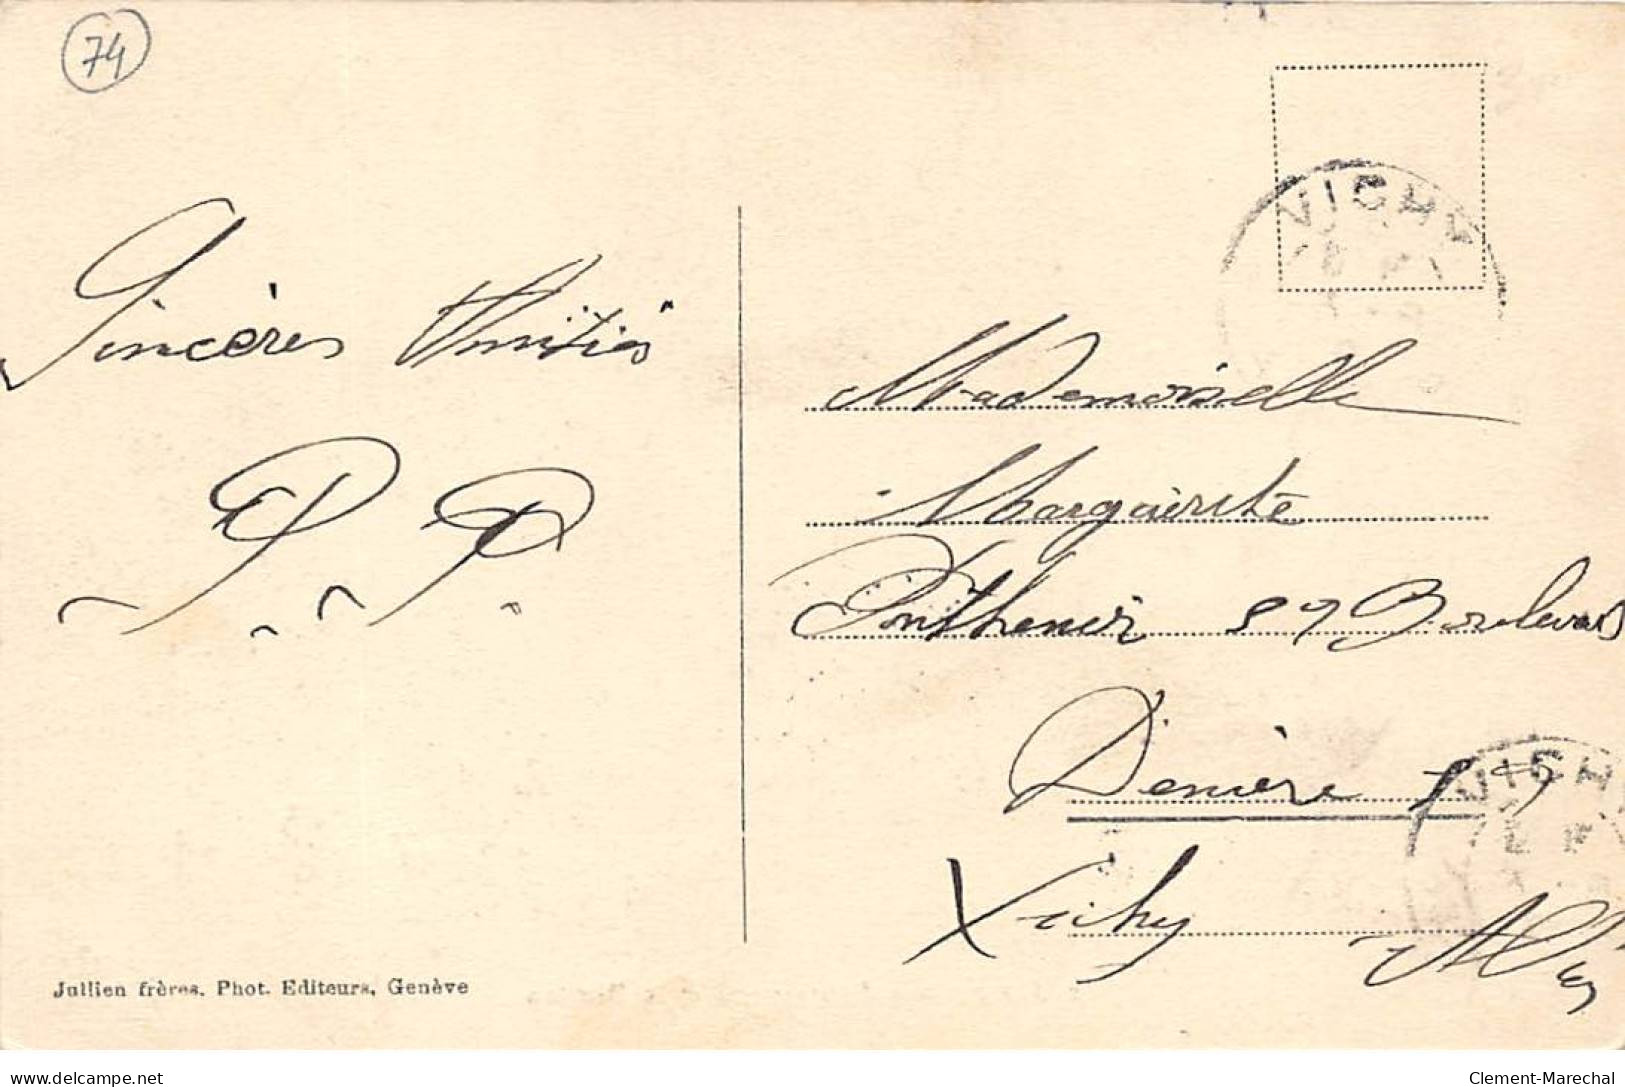 74
VICHY
Sincères Amitiés
P. P.
Mademoiselle
Marguerite
Ponthenier 89 Boulevard
Denière
VICHY
Vichy
Allier
Jullien frères. Phot. Editeurs, Genève
delcampe.net
Clement-Marechal